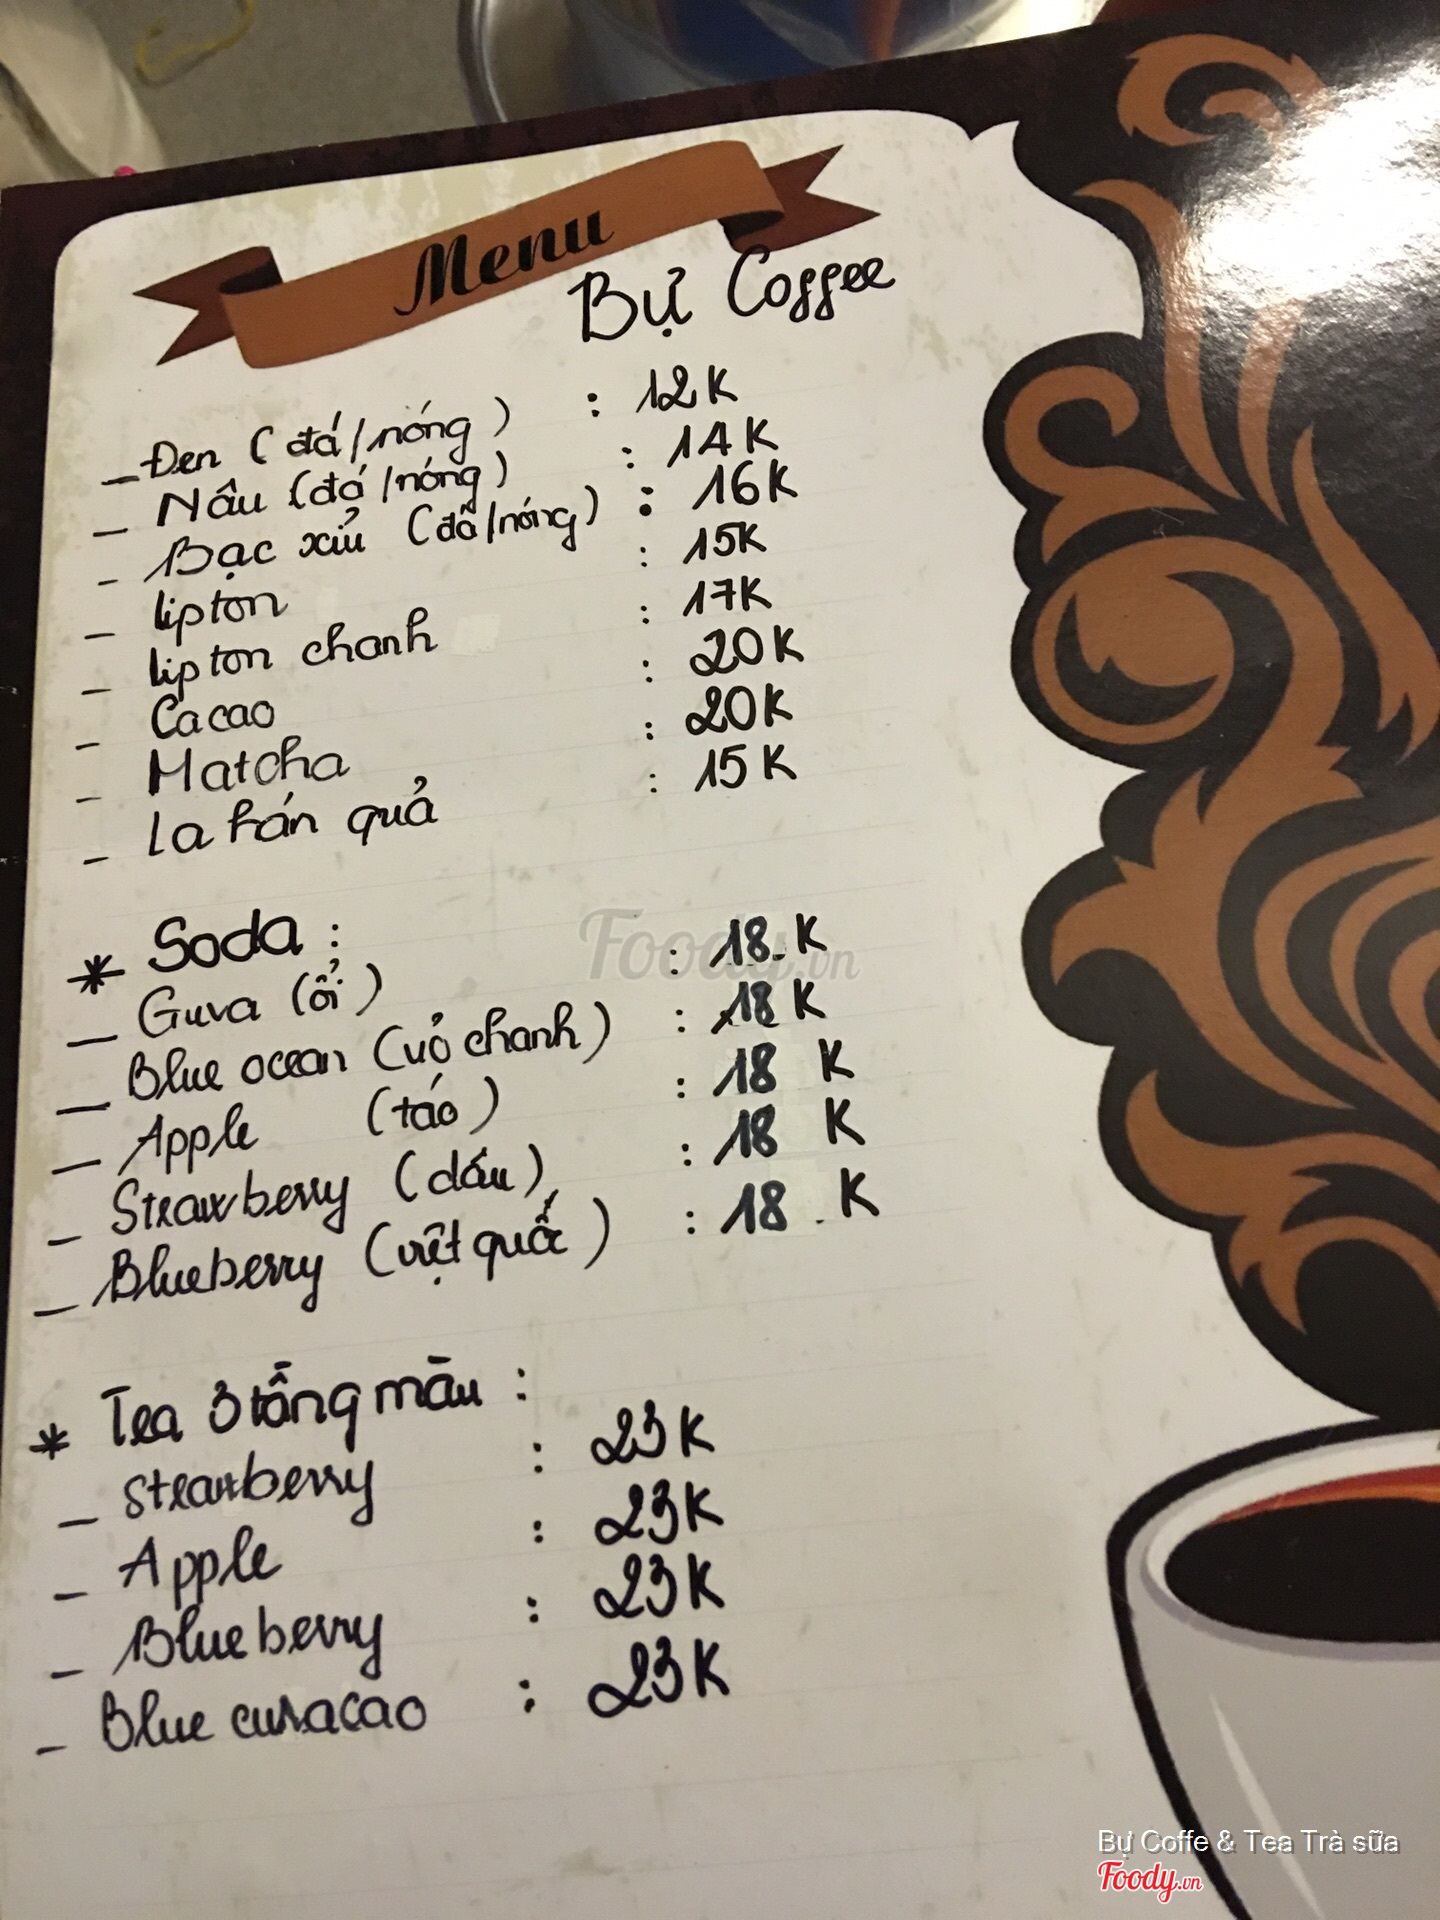 Menu
Bự Coffee
_ Đen (đá/nóng) : 12K
_ Nâu (đá/nóng) : 14K
_ Bạc xỉu (đá/nóng) : 16K
_ lipton : 15K
_ lipton chanh : 17K
_ Cacao : 20K
_ Matcha : 20K
_ la hán quả : 15K
* Soda :
_ Guva (ổi) : 18.K
_ Blue ocean (vỏ chanh) : 18K
_ Apple (táo) : 18 K
_ Strawberry (dấu) : 18 K
_ Blueberry (việt quốc) : 18. K
* Tea 3 tầng màu :
_ Strawberry : 23K
_ Apple : 23K
_ Blueberry : 23K
_ Blue curacao : 23K
Foody.vn
Bự Coffe & Tea Trà sữa
Foody.vn